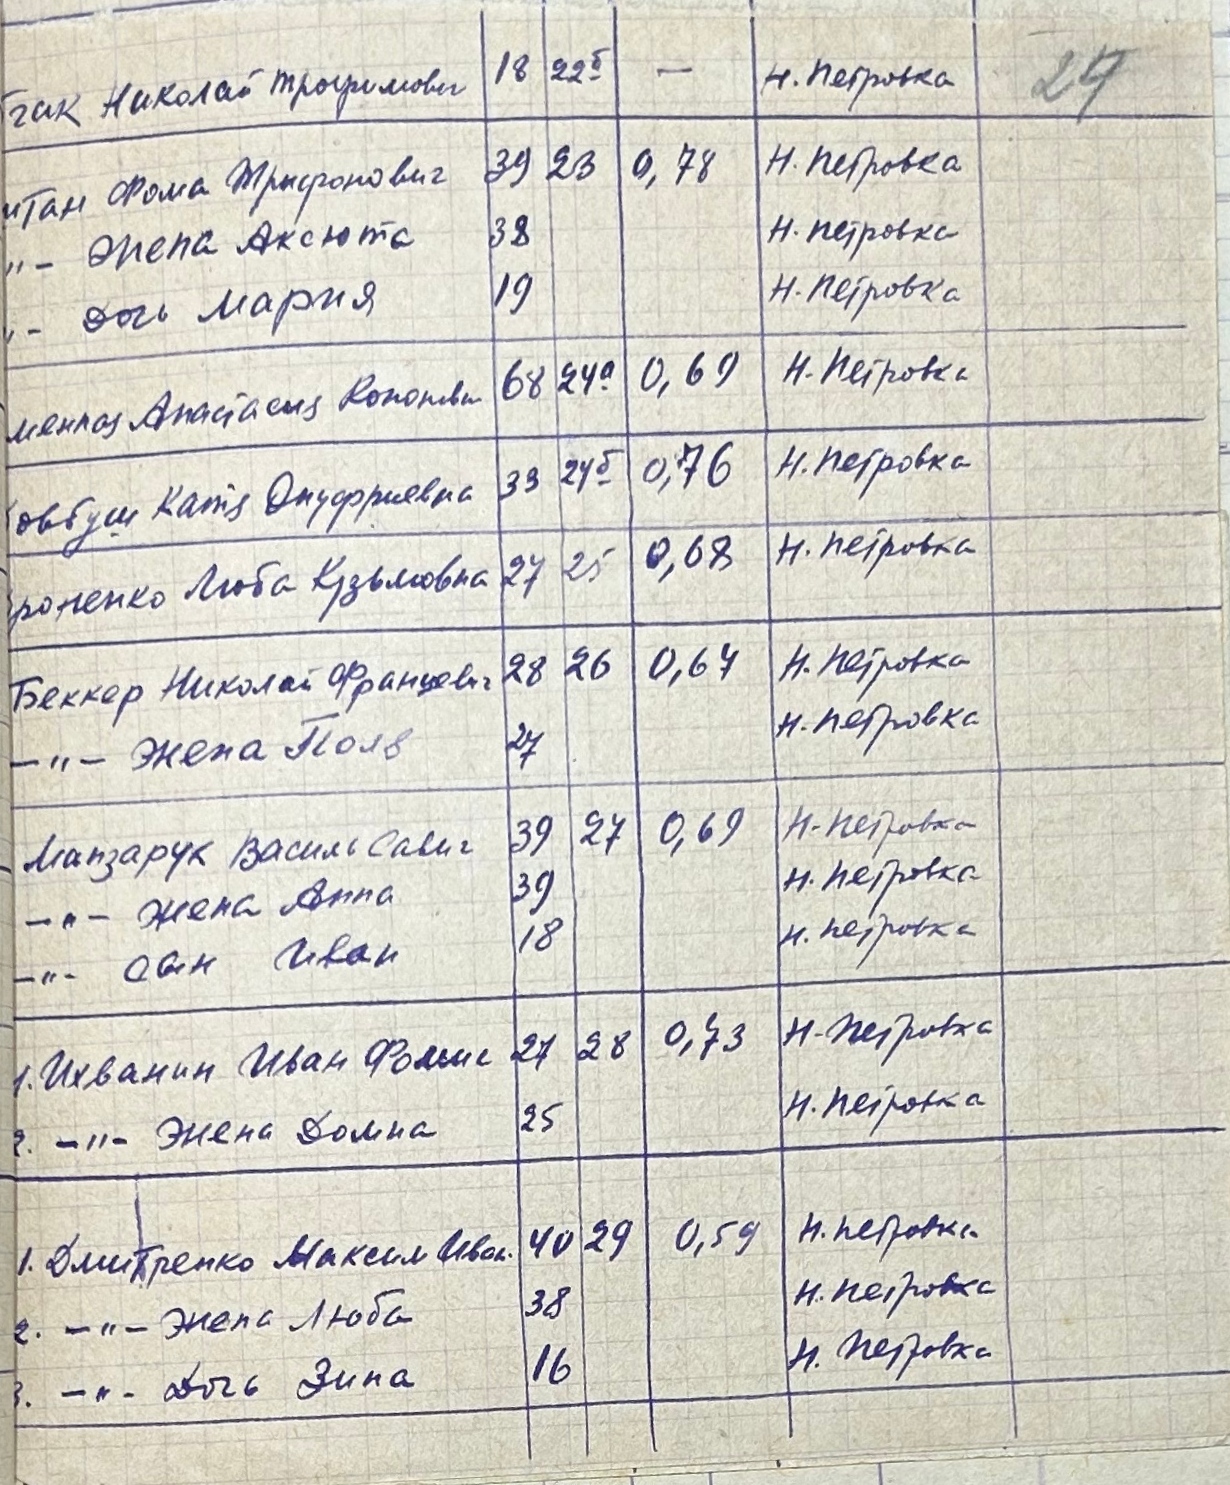 гак Николай Трофимович 18 22б — Н. Петровка 27
Фома Трифонович 39 23 0,78 Н. Петровка
-"- Жена Аксюта 38 Н. Петровка
-"- Дочь Мария 19 Н. Петровка
Анастасия Кононовн 68 24а 0,69 Н. Петровка
овбуш Катя Онуфриевна 33 24б 0,76 Н. Петровка
роненко Люба Кузьмовна 27 25 0,68 Н. Петровка
Беккер Николай Францевич 28 26 0,67 Н. Петровка
-"- Жена Поля 27 Н. Петровка
Манзарук Василь Савич 39 27 0,69 Н. Петровка
-"- Жена Анна 39 Н. Петровка
-"- Сын Иван 18 Н. Петровка
1. Ихванин Иван Фомич 27 28 0,73 Н. Петровка
2. -"- Жена Домна 25 Н. Петровка
1. Дмитренко Максим Иван. 40 29 0,59 Н. Петровка
2. -"- Жена Люба 38 Н. Петровка
3. -"- Дочь Зина 16 Н. Петровка